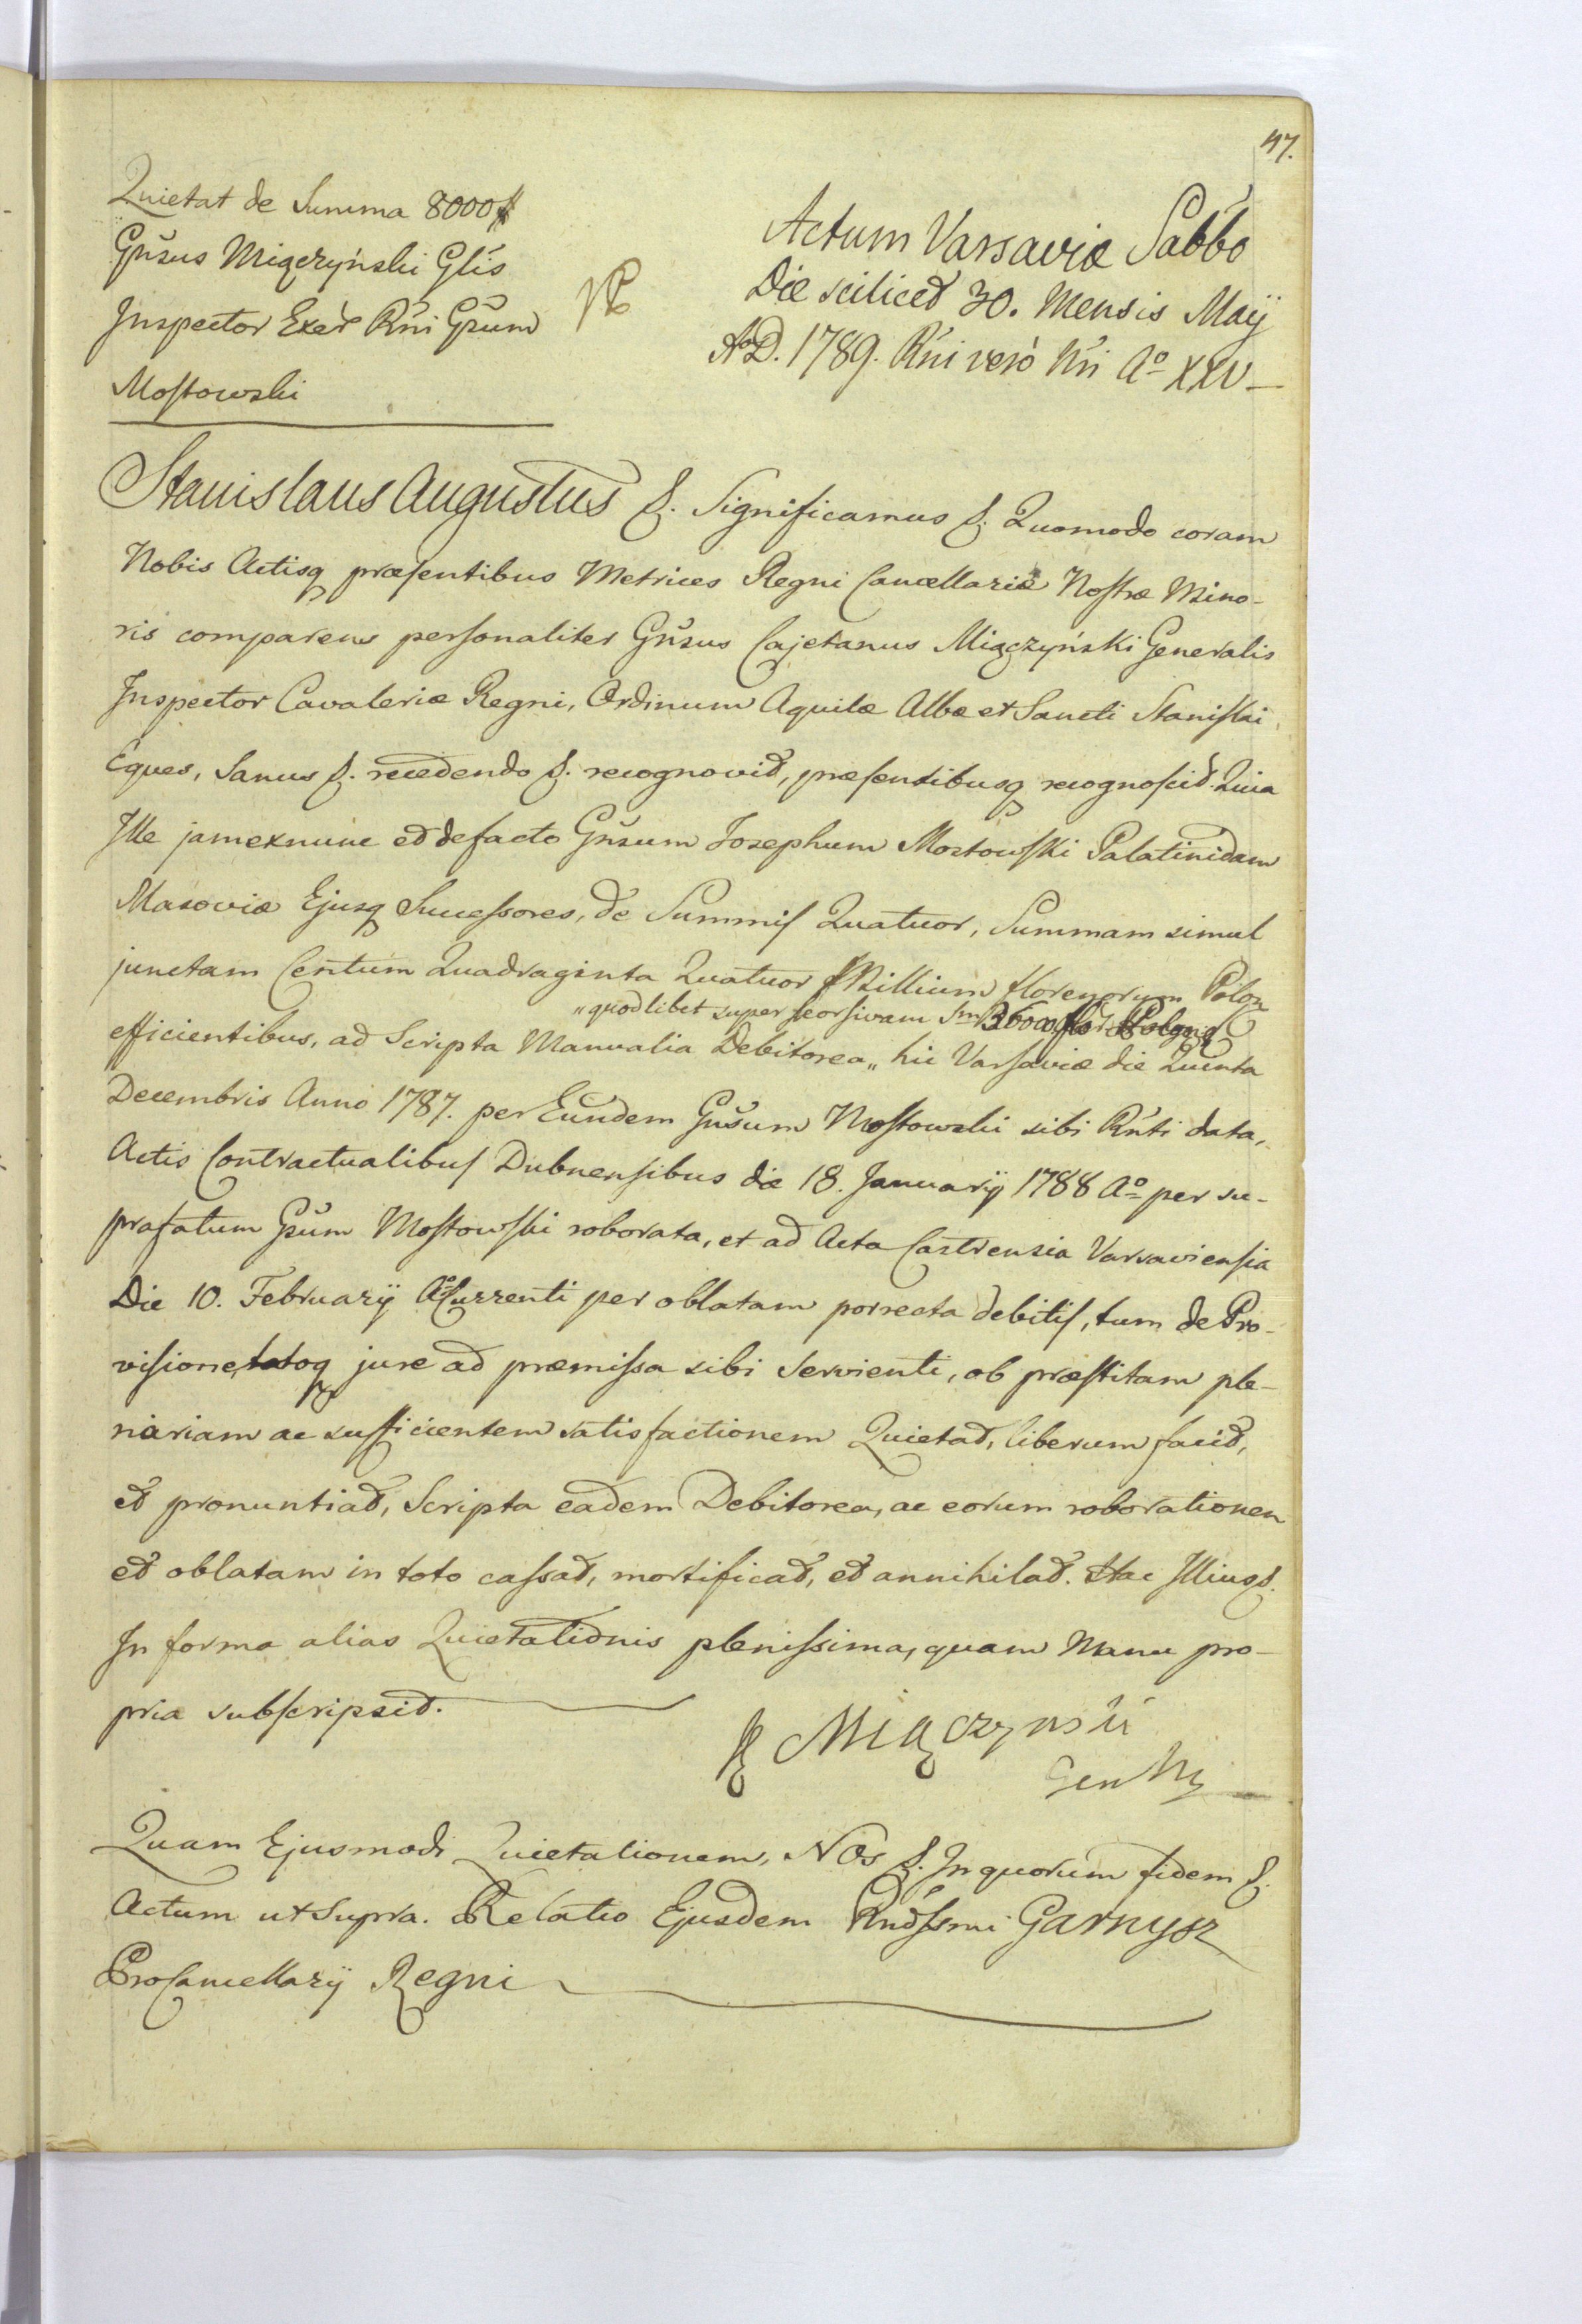 47.
Quietat de Summa 8000 f
Gnsus Miączyński Glis
Inspector Exer Rni Gsum
Mostowski
Actum Varsaviæ Sabbo
Die scilicet 30. Mensis Maij
AoD. 1789. Rni vero Nri Ao XXV
Stanislaus Augustus &. Significamus &. Quomodo coram
Nobis Actisq præsentibus Metrices Regni Cancellariæ Nostræ Mino-
ris comparens personaliter Gnsus Cajetanus Miączyński Generalis
Inspector Cavaleriæ Regni, Ordinum Aquilæ Albæ et Sancti Stanislai
Eques, Sanus &. recedendo &. recognovit, præsentibusq recognoscit. Quia
Ille jamexnunc et defacto Gnsum Josephum Mostowski Palatinidam
Masoviæ Ejusq Successores, de Summis Quatuor, Summam simul
junctam Centum Quadraginta Quatuor Millium florenorum Polon
„quodlibet super seorsivam Sm 36000 flo Polon
efficientibus, ad Scripta Manualia Debitorea „ hic Varsaviæ die Quinta
Decembris Anno 1787. per Eundem Gnsum Mostowski sibi Rnti data,
Actis Contractualibus Dubnensibus die 18. Januarij 1788 Ao per su-
prafatum Gsum Mostowski roborata, et ad Acta Castrensia Varsaviensia
Die 10. February Ao Currenti per oblatam porrecta debitis, tum de Pro-
visione, totoq jure ad præmissa sibi servienti, ob præstitam ple-
nariam ac sufficientem satisfactionem Quietat, liberum facit,
et pronuntiat, Scripta eadem Debitorea, ac eorum roborationem
et oblatam in toto cassat, mortificat, et annihilat. Hac Illius &.
In forma alias Quietationis plenissima, quam Manu pro-
pria subscripsit.
K Miączynski
Quam Ejusmodi Quietationem, NOs &. In quorum fidem &.
Actum ut Supra. Relatio Ejusdem Rndssmi Garnysz
ProCancellarij Regni